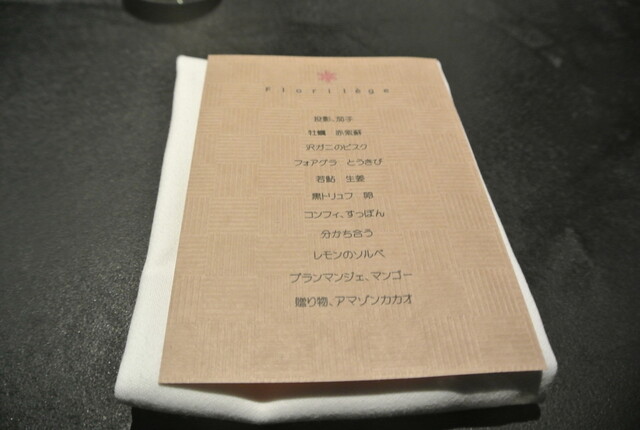 Florilège
投影、茄子
牡蠣 赤紫蘇
沢ガニのビスク
フォアグラ とうきび
若鮎 生姜
黒トリュフ 卵
コンフィ、すっぽん
分かち合う
レモンのソルベ
ブランマンジェ、マンゴー
贈り物、アマゾンカカオ